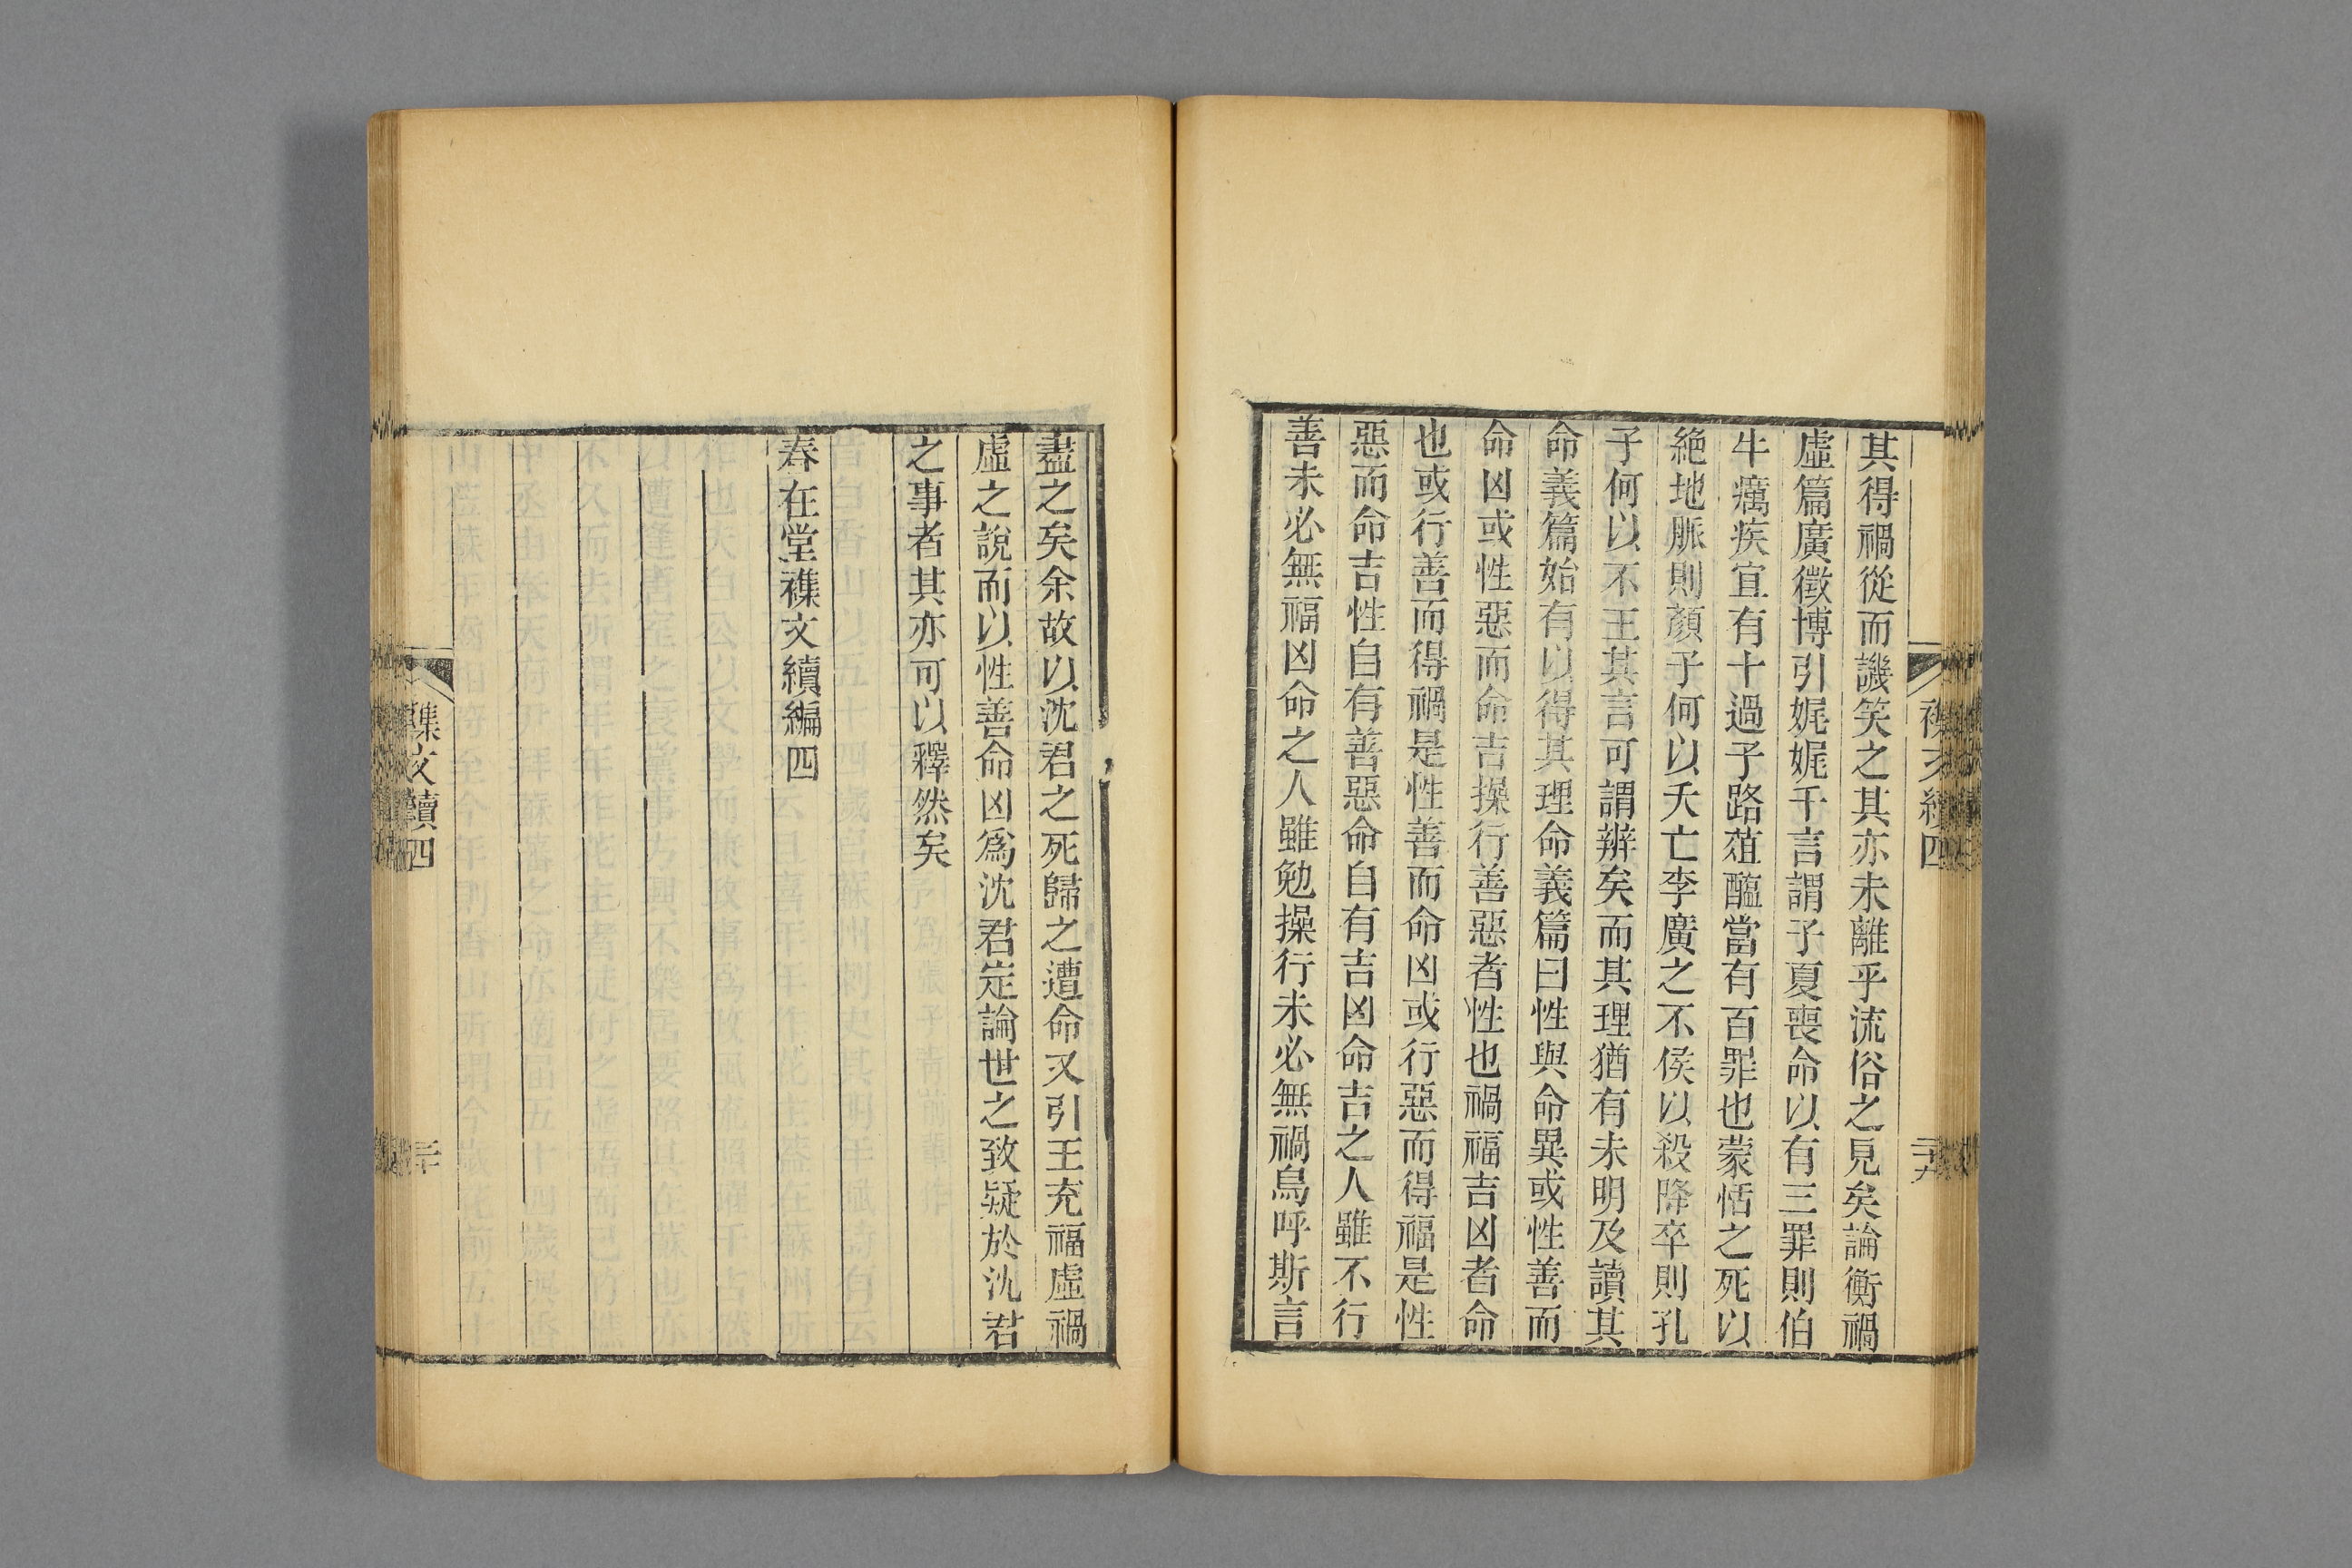 其得禍從而譏笑之其亦未離乎流俗之見矣論衡禍
虛篇廣徵博引娓娓千言謂子夏喪命以有三罪則伯
牛癘疾宜有十過子路葅醢當有百罪也蒙恬之死以
絶地脈則顏子何以夭亡李廣之不侯以殺降卒則孔
子何以不王其言可謂辨矣而其理猶有未明及讀其
命義篇始有以得其理命義篇曰性與命異或性善而
命凶或性惡而命吉操行善惡者性也禍福吉凶者命
也或行善而得禍是性善而命凶或行惡而得福是性
惡而命吉性自有善惡命自有吉凶命吉之人雖不行
善未必無福凶命之人雖勉操行未必無禍烏呼斯言
盡之矣余故以沈君之死歸之遭命又引王充福虛禍
虛之說而以性善命凶爲沈君定論世之致疑於沈君
之事者其亦可以釋然矣
春在堂襍文續編四
襍文續四